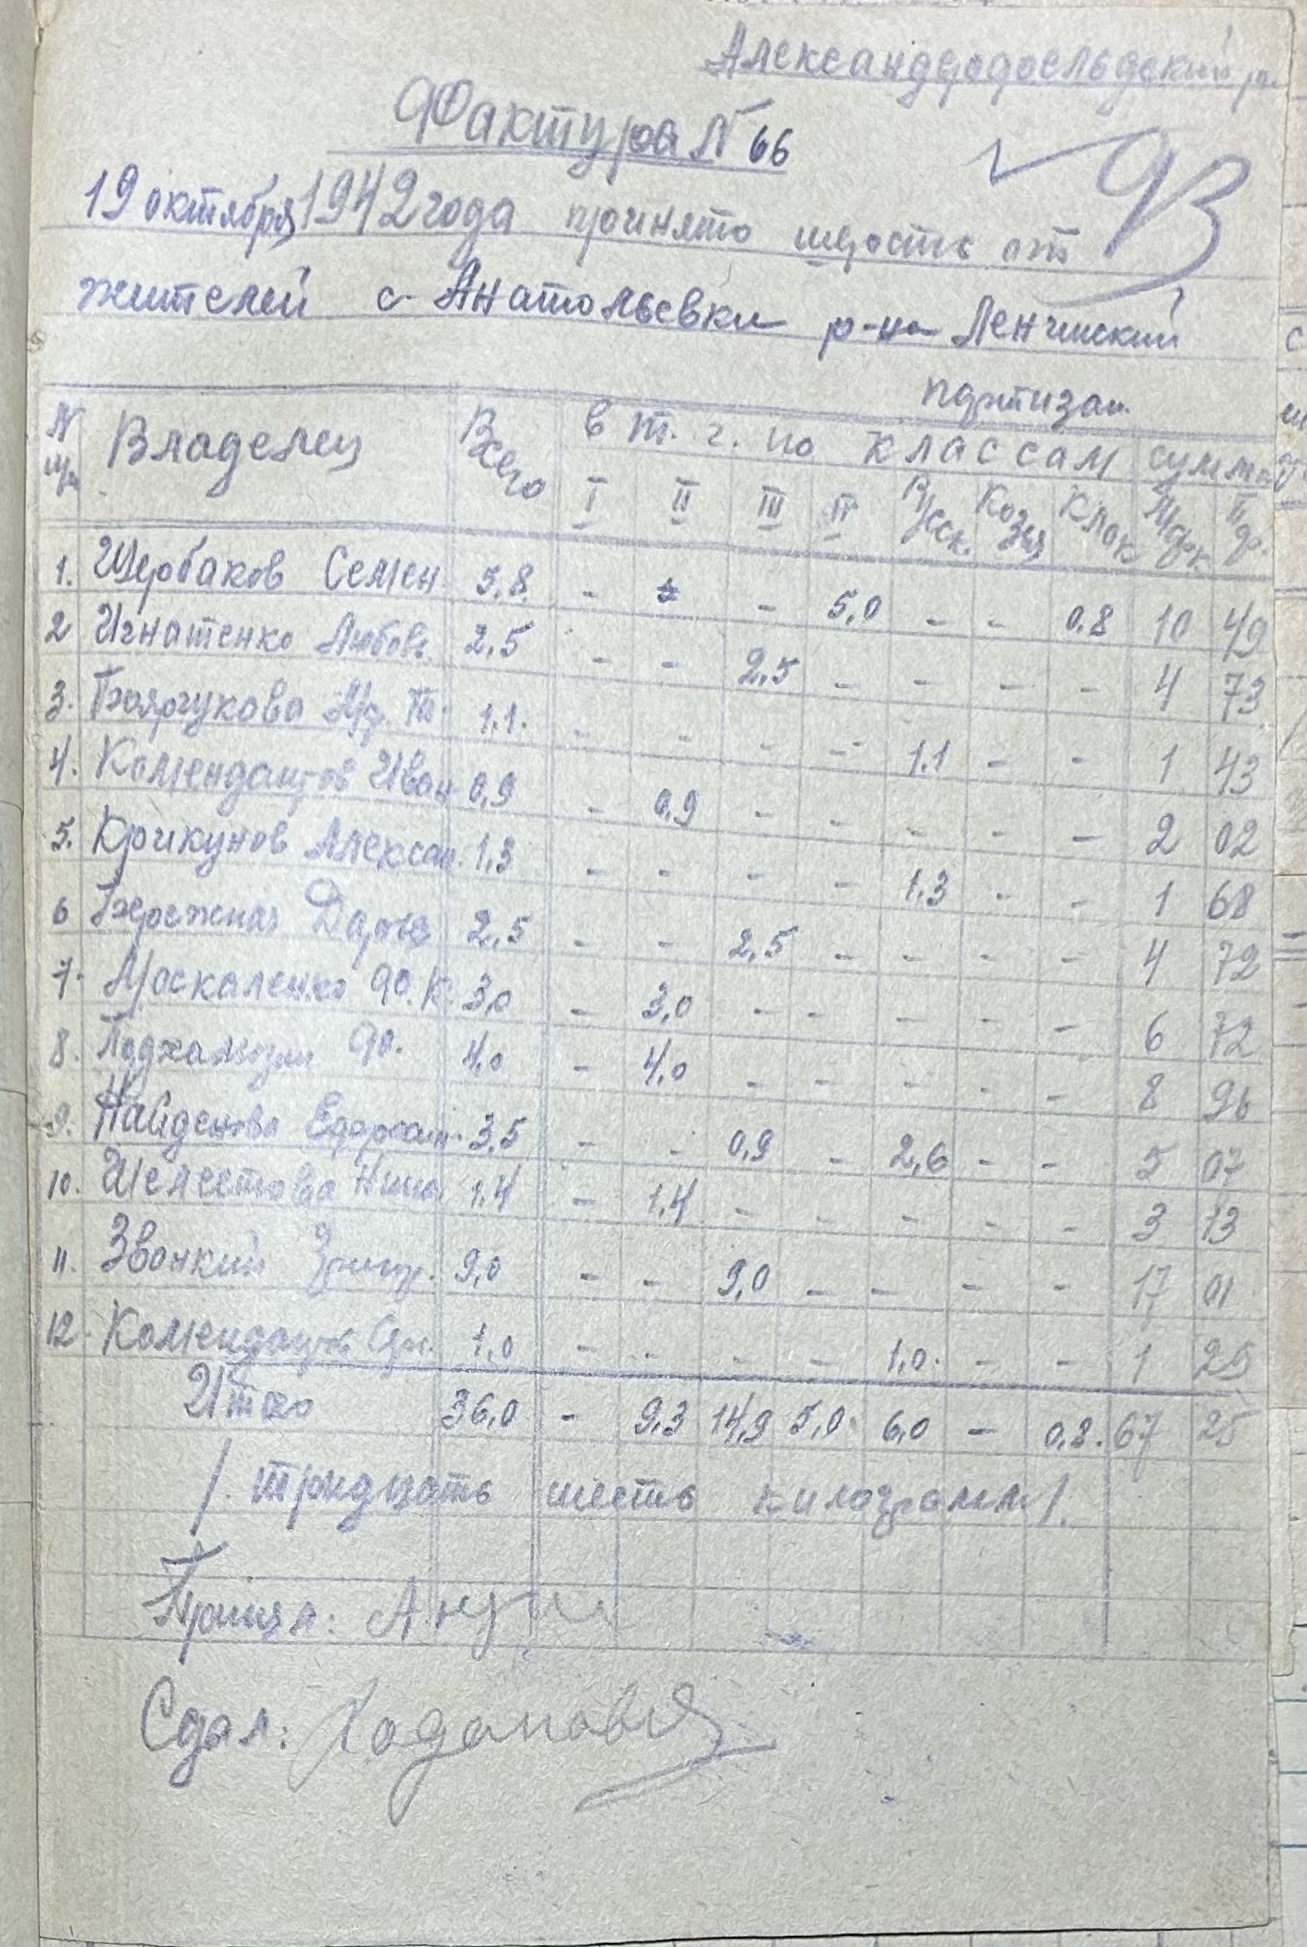 Фактура N 66
93
19 октября 1942 года принято шерсть от
жителей с. Анатольевки р-на
N п/п Владелец Всего в т. ч. по классам сумма
I II III IV Марк Пф.
1. Щербаков Семен 5,8 - - - 5,0 - - 0.8 10 49
2 Игнатенко Любовь 2,5 - - 2,5 - - - - 4 73
3. 1.1. - - - - 1.1 - - 1 43
4. Комендантов Иван 0,9 - 0,9 - - - - - 2 02
5. Крикунов Алексан. 1,3 - - - - 1.3 - - 1 68
6 Бережная Дарья 2,5 - - 2,5 - - - - 4 72
7. Москаленко Ф. К. 3,0 - 3,0 - - - - - 6 72
8. Ф. 4,0 - 4,0 - - - - - 8 96
9. Найденова 3.5 - - 0,9 - 2,6 - - 5 07
10. Шелестова Нина 1,4 - 1.4 - - - - - 3 13
11. Звонкий Григ. 9,0 - - 9,0 - - - - 17 01
12. 1,0 - - - - 1,0 - - 1 29
Итого 36,0 - 9,3 14,9 5,0 6,0 - 0,8. 67 25
/. тридцать шесть килограмм /.
Принял:
Сдал: